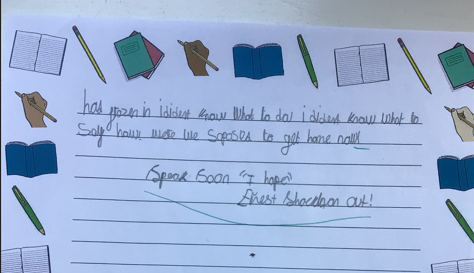 has frozen in ididnt know What to do! i didnt know What to
Say how were we Sposes to get home now!
Speak Soon "I hope"
Ernest Shackleton out!